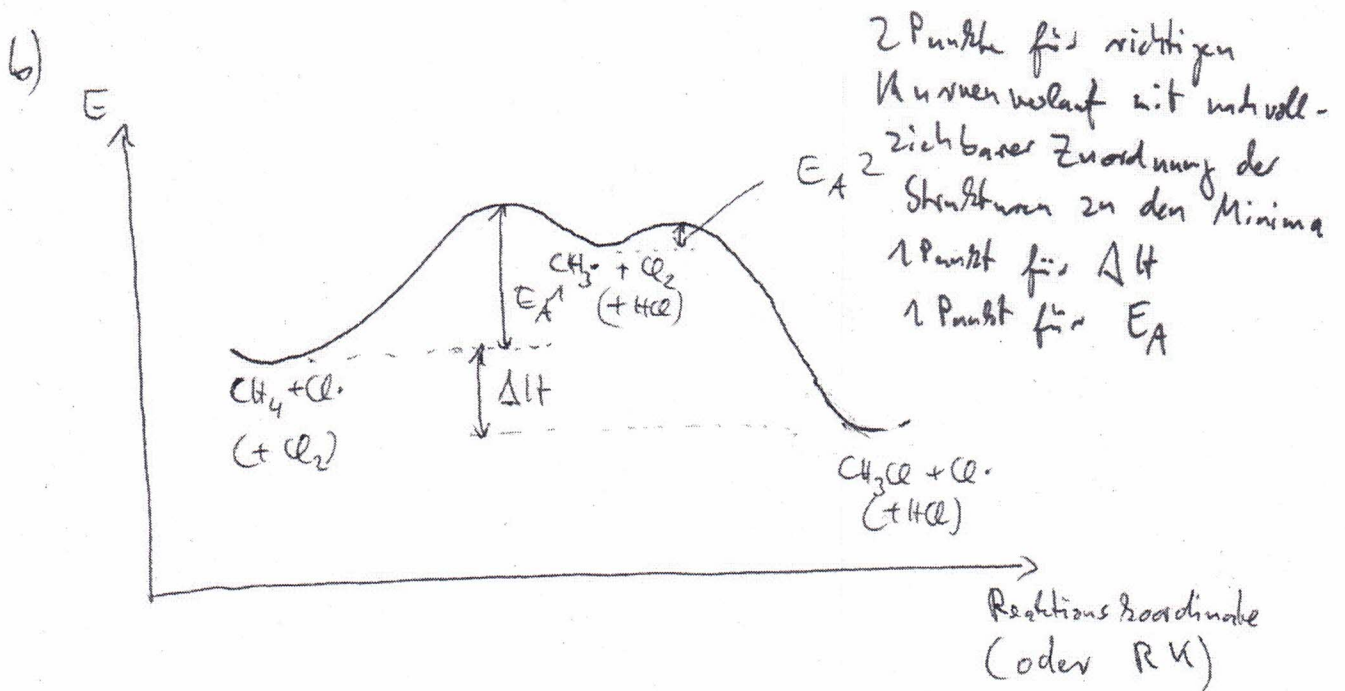 b)
2 Punkte für richtigen
Kurvenverlauf mit nachvoll-
ziehbarer Zuordnung der
Strukturen zu den Minima
1 Punkt für ΔH
1 Punkt für E_A
E
E_A 2
CH₃· + Cl₂
(+ HCl)
E_A 1
CH₄ + Cl·
(+ Cl₂)
ΔH
CH₃Cl + Cl·
(+ HCl)
Reaktionskoordinate
(oder RK)